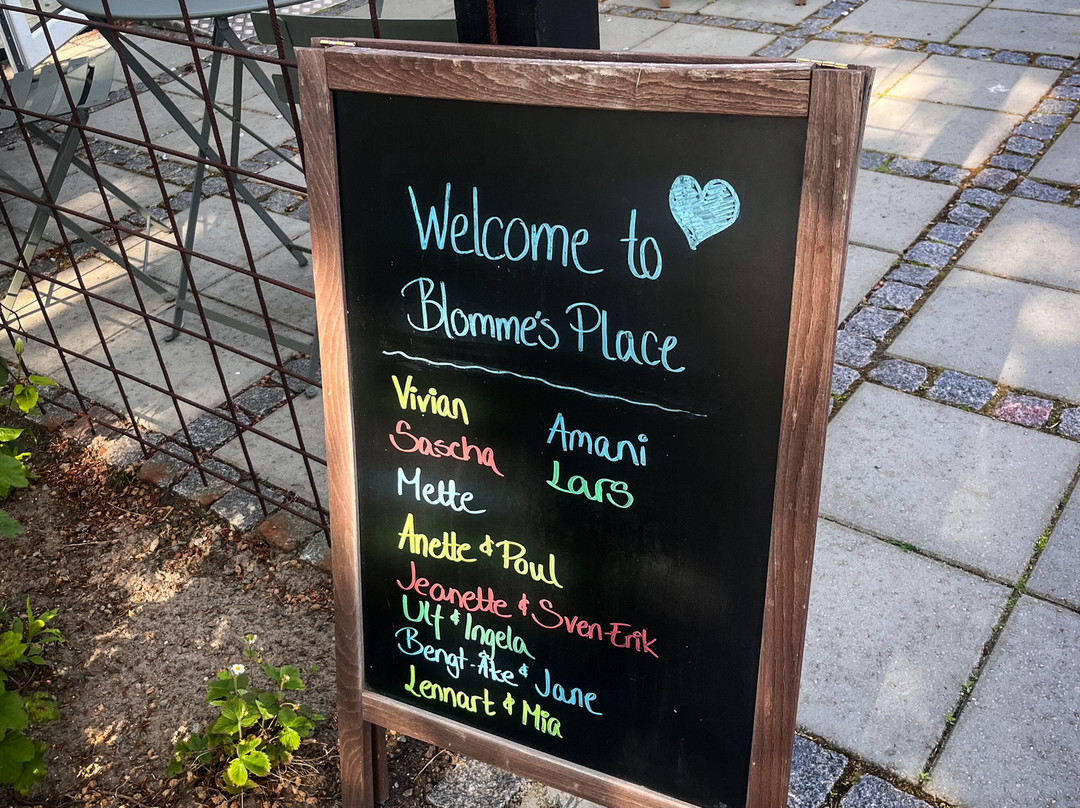 Welcome to
Blomme's Place
Vivian
Sascha
Mette
Anette & Poul
Jeanette & Sven-Erik
Ulf & Ingela
Bengt-Åke & Jane
Lennart & Mia
Amani
Lars